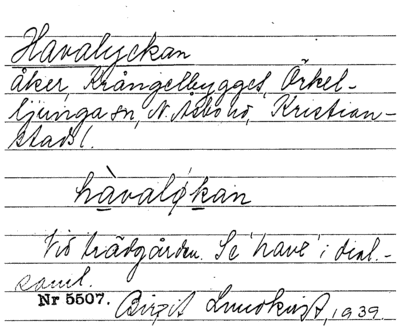 Havalyckan
åker, Krångelbygget, Örkel-
ljunga sn, N. Åsbo hd, Kristian-
stads l.
hàvalø̀kan
Vid trädgården. Se 'have' i dial.-
saml.
Nr 5507. Birgit Lundkvist, 1939.